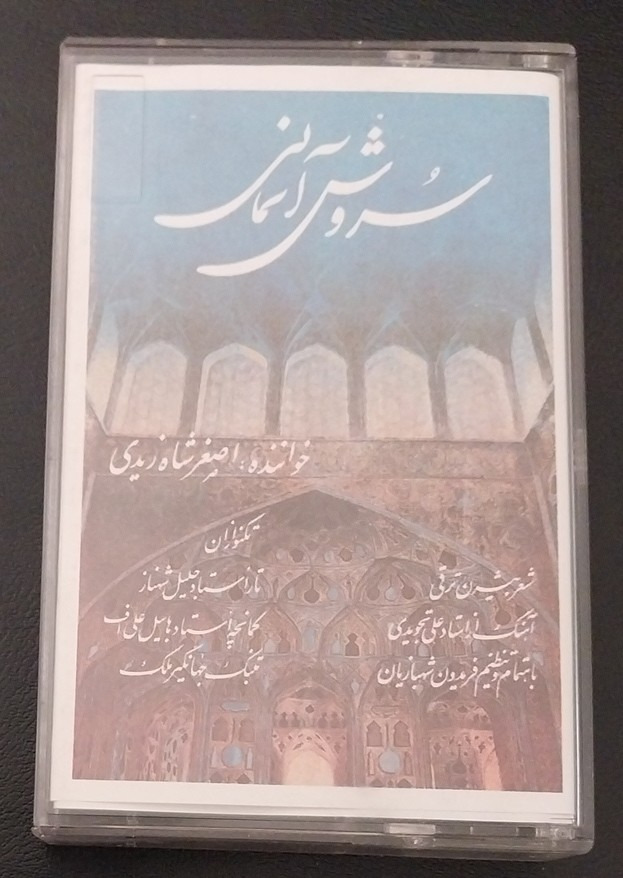 سروش آسمانی
خواننده: اصغر شاه زیدی
تکنوازان
شعر بیژن ترقی
تار استاد جلیل شهناز
آهنگ از استاد علی تجویدی
کمانچه استاد هابیل علی اف
باهتمام و تنظیم فریدون شهبازیان
تنبک جهانگیر ملک